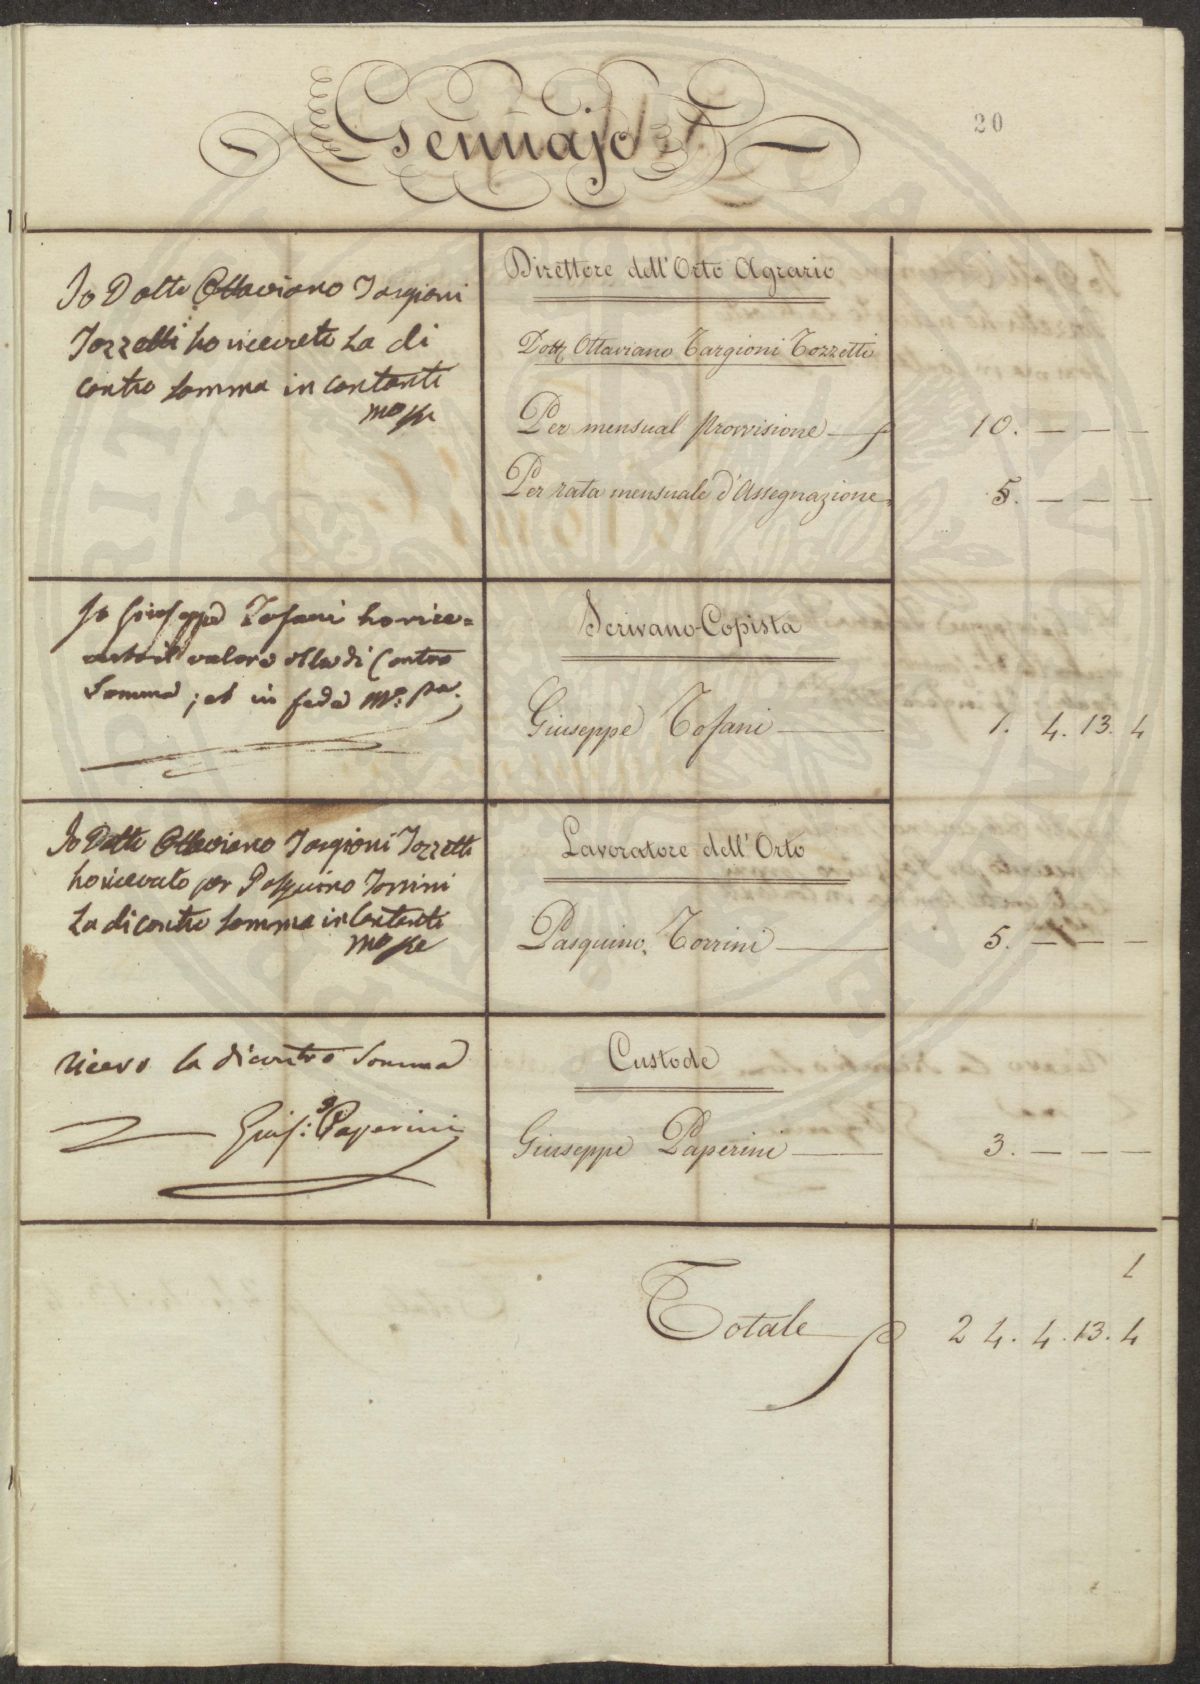 Gennajo
20
Io Dotte Ottaviano Targioni
Tozzetti ho ricevuto La di
contro Somma in contanti
Direttore dell'Orto Agrario
Dott. Ottaviano Targioni Tozzetti
Per mensual Provvisione 10. — — —
Per rata mensuale d'Assegnazione 5. — — —
Io Giuseppe Tofani ho rice=
valore di Contro
Somma; et in fede
Scrivano-Copista
Giuseppe Tofani 1. 4. 13. 4
Io Dotte Ottaviano Targioni Tozzetti
ho ricevuto per Pasquino Torrini
La di contro Somma in Contanti
Lavoratore dell'Orto
Pasquino Torrini 5. — — —
ricevo la dicontro Somma
Gius: Paperini
Custode
Giuseppe Paperini 3. — — —
Totale 24. 4. 13. 4